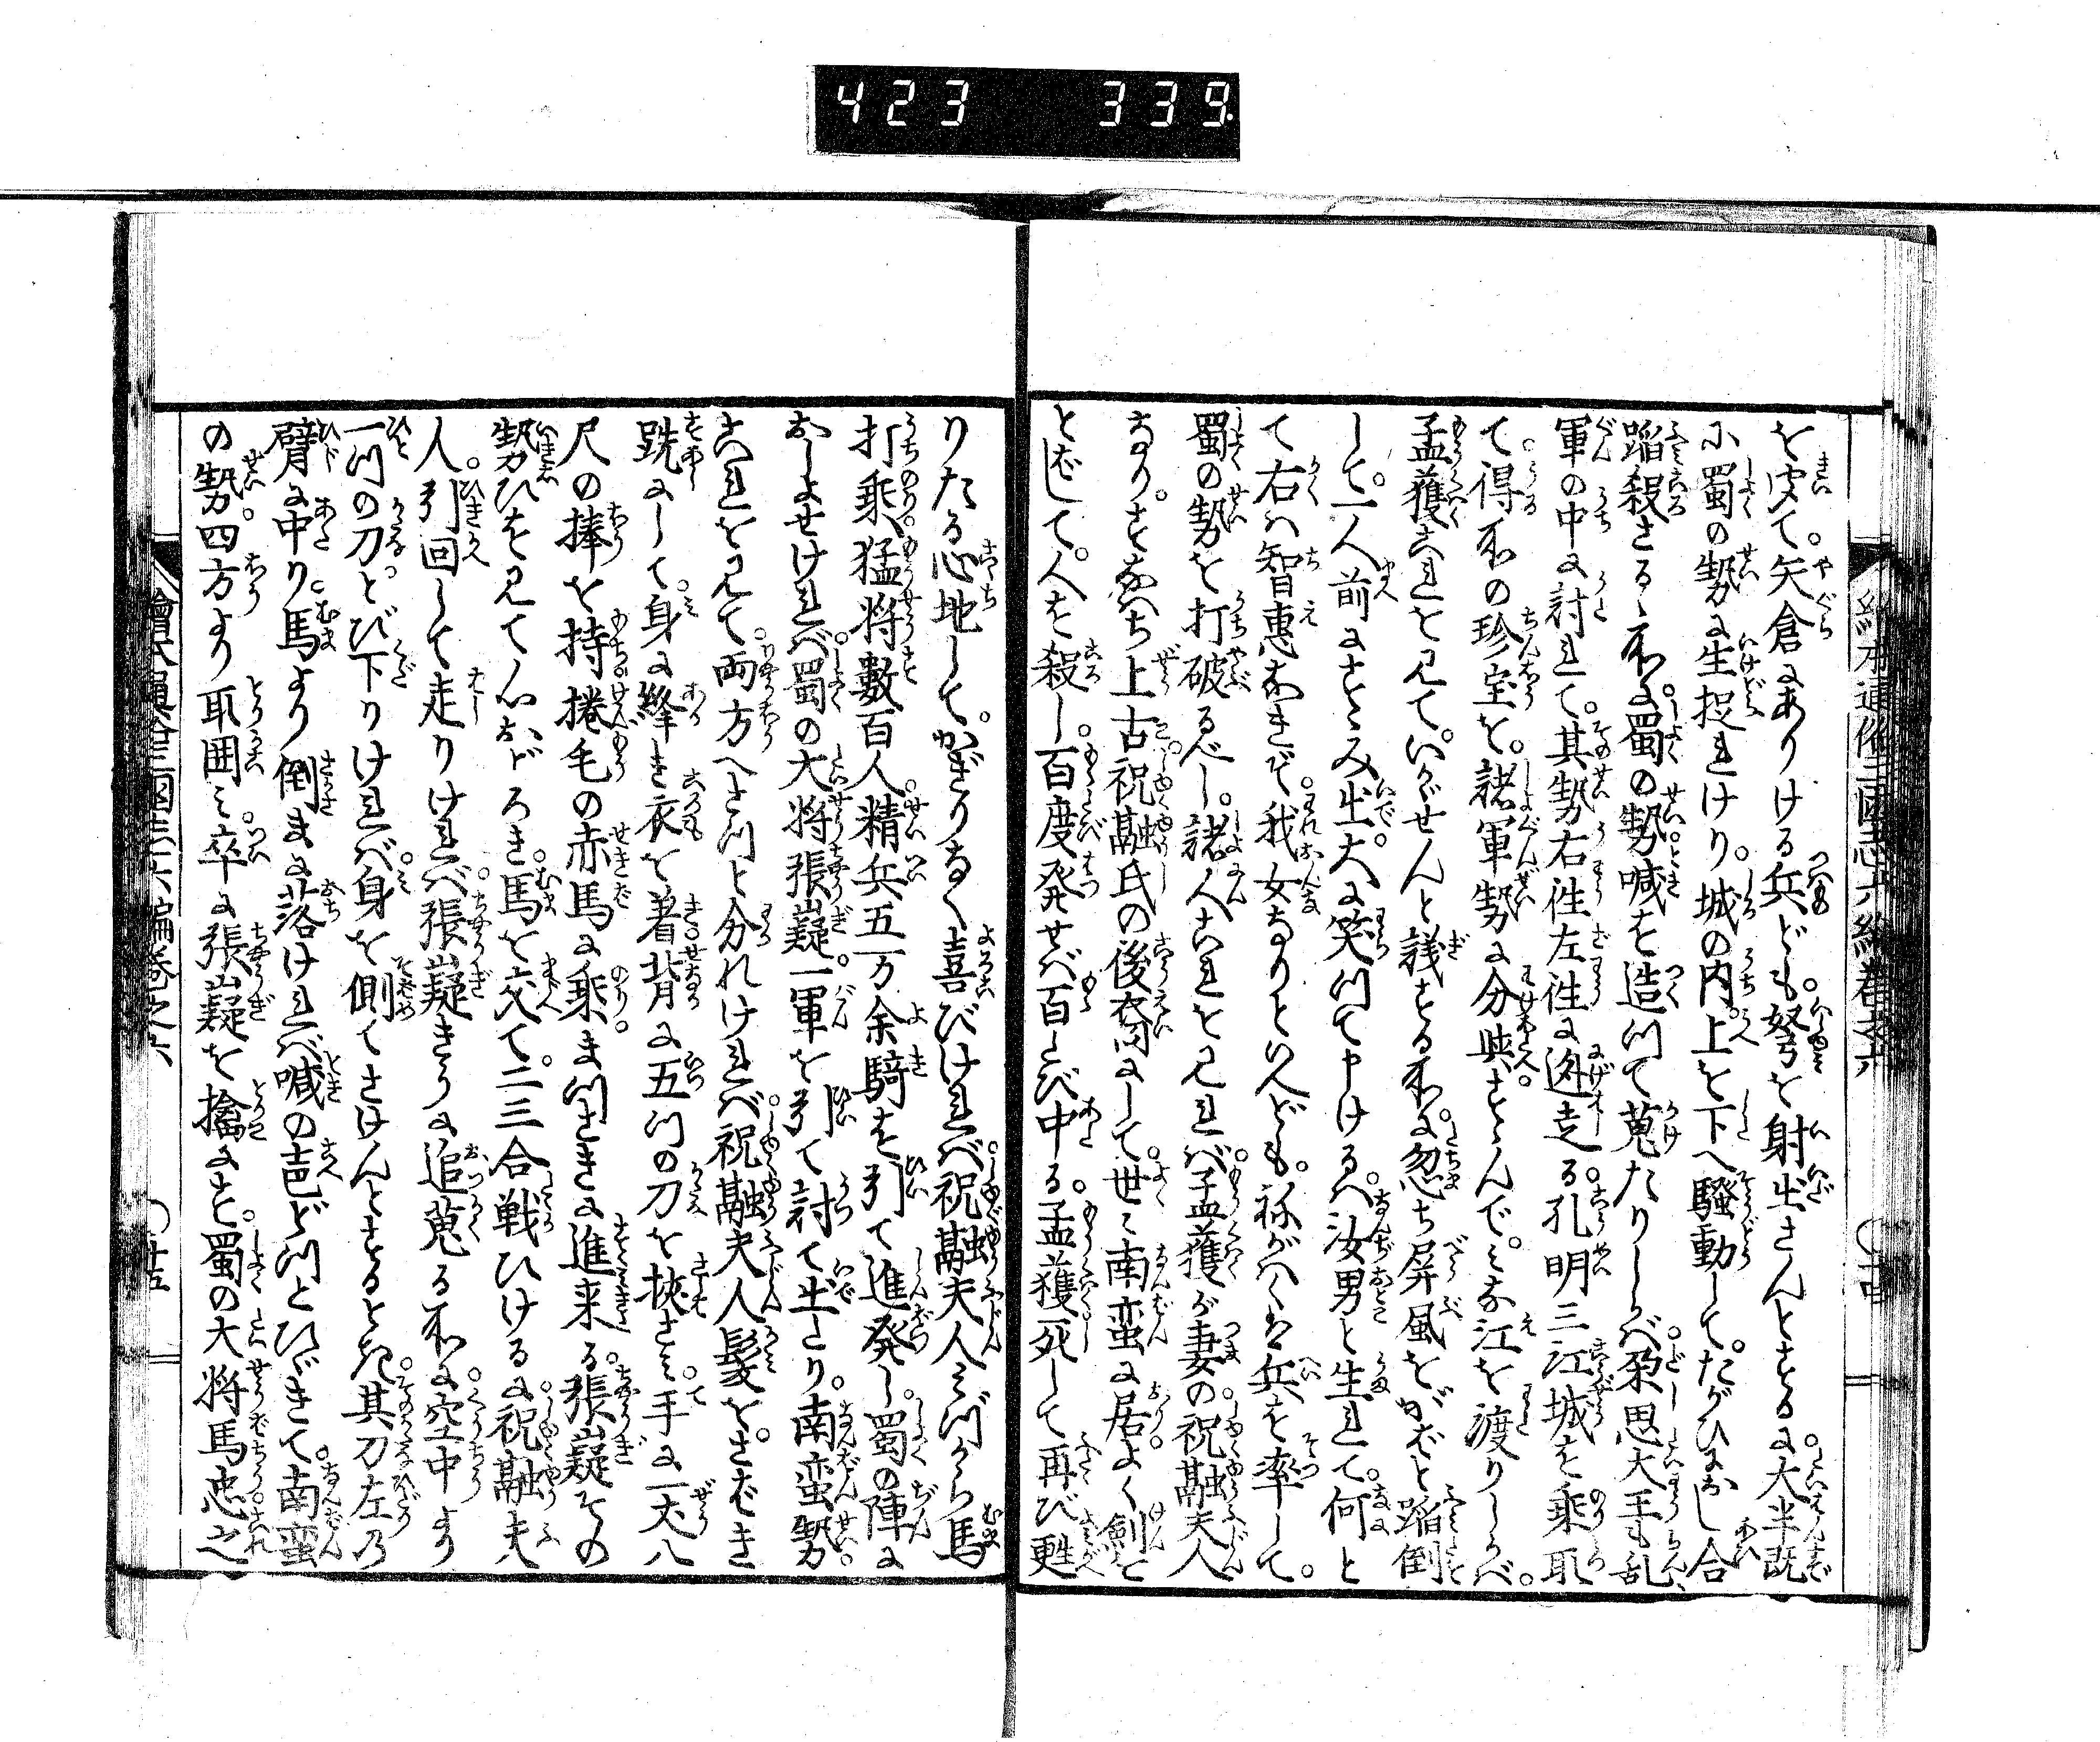 423 339
繪本通俗三國志六編巻之六
を皮て。矢倉にありける兵ども。弩を射出さんとするに大半既
に蜀の勢に生捉れけり。城の内。上を下へ騒動して。たがひにおし合
蹈殺さるゝ所に蜀の勢喊を造つて蒐たりしかば。朶思大王も乱
軍の中に討れて。其勢右往左往に迯走る。孔明三江城を乗取
て。得所の珍宝を。諸軍勢に分與すゝんで。みな江を渡りしかば。
孟獲これを見て。いかゞせんと議する所に忽ち屏風をがばと蹈倒
して。一人前にすゝみ出。大に笑つて申けるハ。汝男と生れて。何と
て右ハ智恵なきぞ。我女なりといへども。ねがハくハ兵を率して。
蜀の勢を打破るべし。諸人これを見れば。孟獲が妻の祝融夫人
なり。すなハち上古祝融氏の後裔にして。世々南蛮に居。よく劍を
とばして。人を殺し。百度発せば百たび中る。孟獲死して再び甦
りたる心地して。かぎりなく喜びければ。祝融夫人みづから馬
に打乗。猛将數百人。精兵五万余騎を引て進発し。蜀の陣に
おしよせければ。蜀の大将張嶷。一軍を引て討て出たり。南蛮勢
これを見て。両方へさつと分れければ。祝融夫人髪をさばき
跣にして。身に絳き衣を着背に五つの刀を挟さみ。手に一丈八
尺の捧を持。捲毛の赤馬に乗。まつさきに進来る。張嶷その
勢ひを見て心おどろき。馬を交て。二三合戦ひけるに。祝融夫
人。引回して走りければ。張嶷きうに追蒐る所に。空中より
一つの刀。とび下りければ。身を側てさけんとするとき。其刀左乃
臂に中り。馬より倒まに落ければ。喊の声どつとひゞきて。南蛮
の勢。四方より取囲み。卒に張嶷を擒にす。蜀の大将馬忠之
繪本通俗三國志六編巻之六